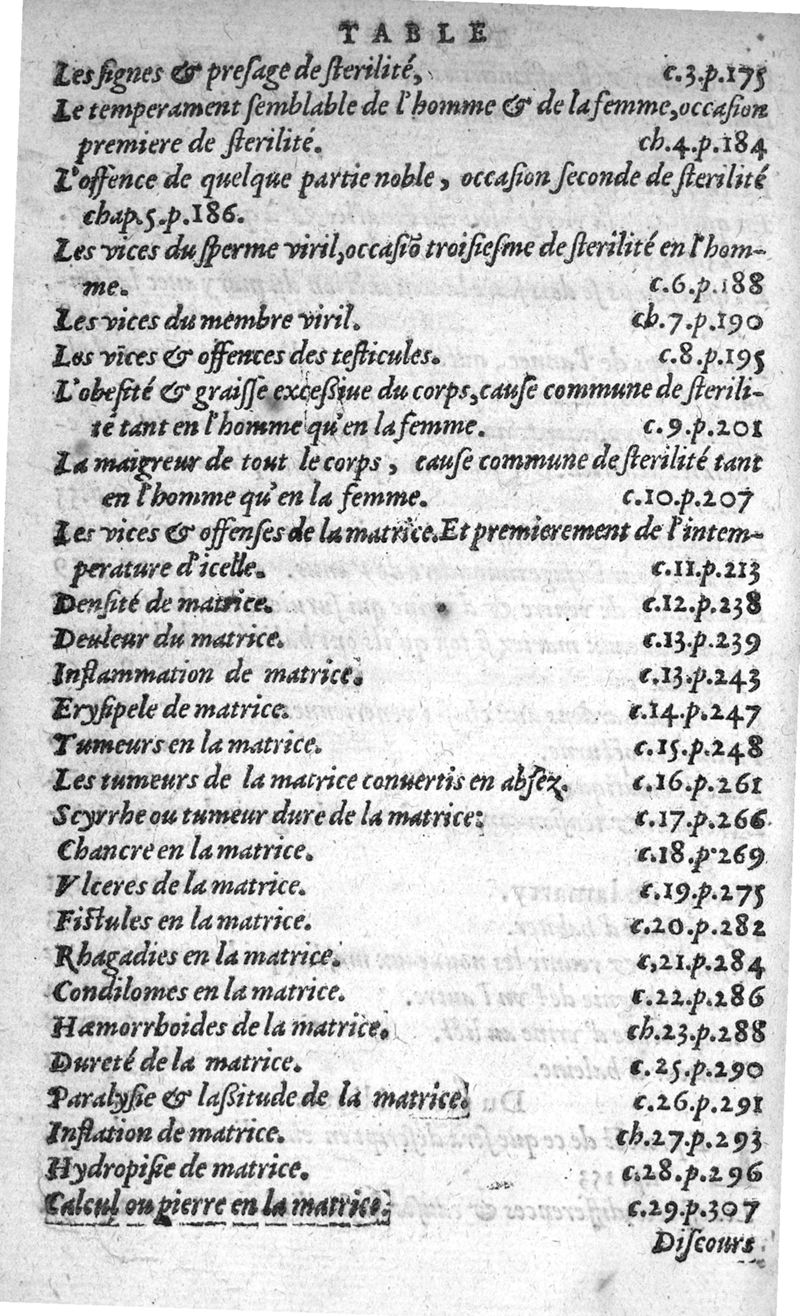 TABLE
Les ſignes & preſage de ſterilité, c.3.p.175
Le temperament ſemblable de l'homme & de la femme, occaſion
premiere de ſterilité. ch.4.p.184
L'offence de quelque partie noble, occaſion ſeconde de ſterilité
chap.5.p.186.
Les vices du ſperme viril, occaſiõ troiſieſme de ſterilité en l'hom-
me. c.6.p.188
Les vices du membre viril. ch.7.p.190
Les vices & offences des teſticules. c.8.p.195
L'obeſité & graiſſe exceßiue du corps, cauſe commune de ſterili-
té tant en l'homme qu'en la femme. c.9.p.201
La maigreur de tout le corps, cauſe commune de ſterilité tant
en l'homme qu'en la femme. c.10.p.207
Les vices & offenſes de la matrice. Et premierement de l'intem-
perature d'icelle. c.11.p.213
Denſité de matrice. c.12.p.238
Deuleur du matrice. c.13.p.239
Inflammation de matrice. c.13.p.243
Eryſipele de matrice. c.14.p.247
Tumeurs en la matrice. c.15.p.248
Les tumeurs de la matrice conuertis en abſez. c.16.p.261
Scyrrhe ou tumeur dure de la matrice: c.17.p.266
Chancre en la matrice. c.18.p.269
Vlceres de la matrice. c.19.p.275
Fiſtules en la matrice. c.20.p.282
Rhagadies en la matrice. c,21.p.284
Condilomes en la matrice. c.22.p.286
Hæmorrhoides de la matrice. ch.23.p.288
Dureté de la matrice. c.25.p.290
Paralyſie & laßitude de la matrice. c.26.p.291
Inflation de matrice. ch.27.p.293
Hydropiſie de matrice. c.28.p.296
Calcul ou pierre en la matrice. c.29.p.307
Diſcours